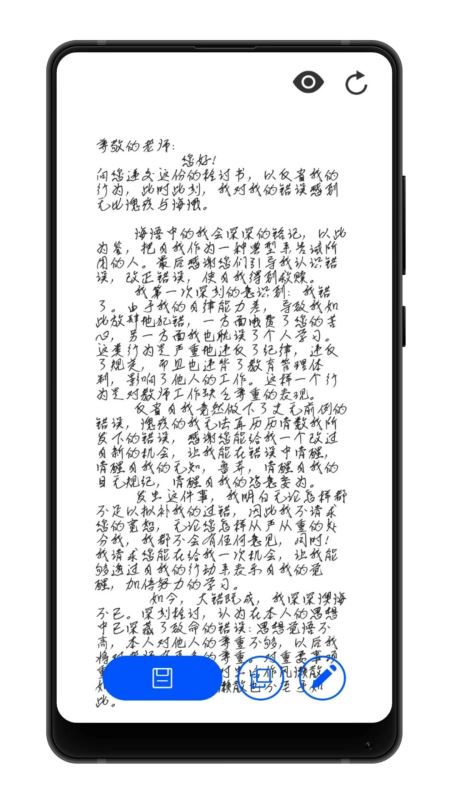 尊敬的老师:
您好!
向您递交这份的检讨书，以反省我的
行为，此时此刻，我对我的错误感到
无比愧疚与悔恨。
悔悟中的我会深深的铭记，以此
为鉴，把自我作为一种典型来告诫所
周的人。最后感谢您们引导我认识错
误，改正错误，使自我得到救赎。
我第一次深刻的意识到：我错
了。由于我的自律能力差，导致我如
此放肆地犯错，一方面浪费了您的苦
心，另一方面我也耽误了个人学习。
这类行为是严重地违反了纪律，违反
了规定，而且也违背了教育管理体
制，影响了他人的工作。这样一个行
为是对教师工作缺乏尊重的表现。
反省自我竟然做下了史无前例的
错误，愧疚的我无法再历历清数我所
发下的错误，感谢您能给我一个改过
自新的机会，让我能在错误中清醒，
清醒自我的无知，愚弄，清醒自我的
目无规纪，清醒自我的恣意妄为。
发生这件事，我明白无论怎样都
不足以拟补我的过错，因此我不请求
您的宽恕，无论您怎样从严从重的处
分我，我都不会有任何意见，同时！
我请求您能在给我一次机会，让我能
够透过自我的行动来表示自我的觉
醒，加倍努力的学习。
如今，大错既成，我深深懊悔
不已。深刻检讨，认为在本人的思想
中已深藏了致命的错误：思想觉悟不
高，本人对他人的尊重不够，以后我
此。